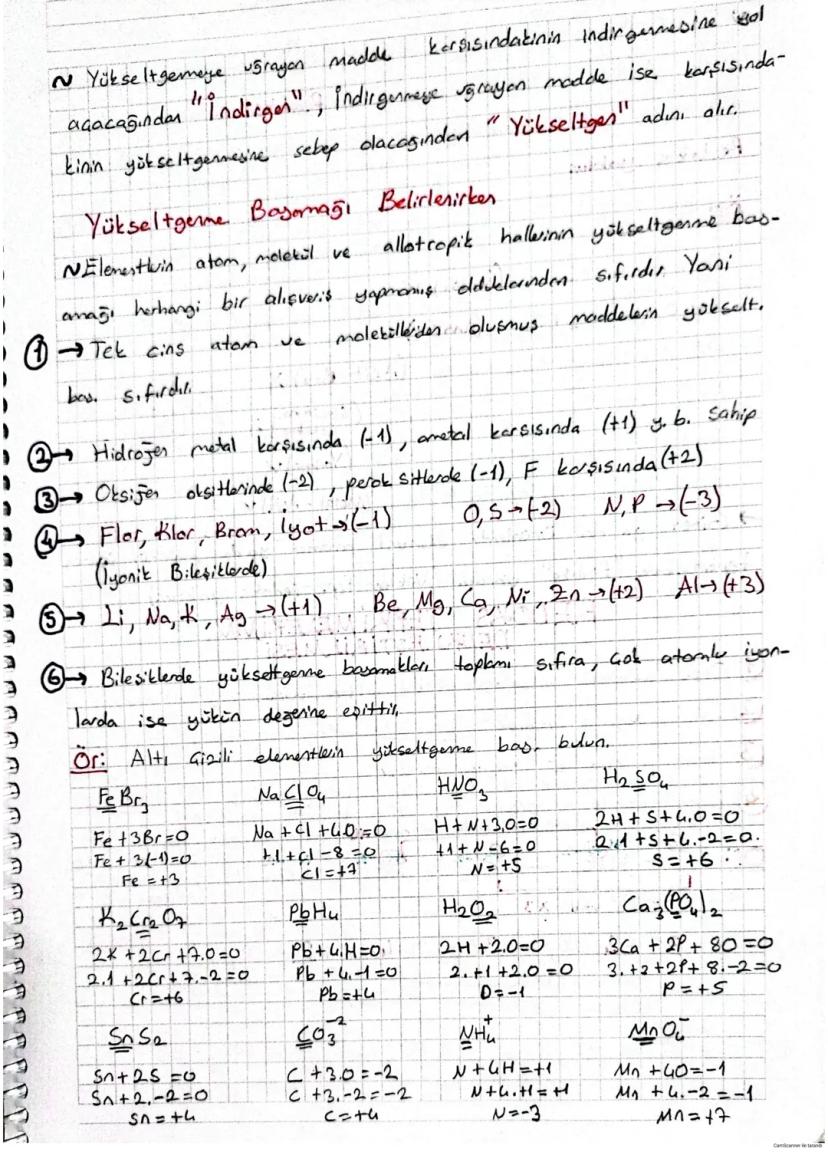 ~ Yükseltgenmeye uğrayan madde karşısındakinin indirgenmesine yol
açacağından "İndirgen", İndirgenmeye uğrayan madde ise karşısında-
kinin yükseltgenmesine sebep olacağından "Yükseltgen" adını alır.
Yükseltgenme Basamağı Belirlenirken
~ Elementlerin atom, molekül ve allotropik hallerinin yükseltgenme bas-
amağı herhangi bir alışveriş yapmamış olduklarından sıfırdır. Yani
① → Tek cins atom ve moleküllerden oluşmuş maddelerin yükselt.
bas. sıfırdır.
② → Hidrojen metal karşısında (-1), ametal karşısında (+1) y.b. sahip
③ → Oksijen oksitlerinde (-2), peroksitlerde (-1), F karşısında (+2)
④ → Flor, Klor, Brom, İyot → (-1) O, S → (-2) N, P → (-3)
(İyonik Bileşiklerde)
⑤ → Li, Na, K, Ag → (+1) Be, Mg, Ca, Ni, Zn → (+2) Al → (+3)
⑥ → Bileşiklerde yükseltgenme basamakları toplamı sıfıra, çok atomlu iyon-
larda ise yükün değerine eşittir.
Ör: Altı çizili elementlerin yükseltgenme bas. bulun.
FeBr₃ NaClO₄ HNO₃ H₂SO₄
Fe+3Br=0 Na+Cl+4O=0 H+N+3.O=0 2H+S+4.O=0
Fe+3(-1)=0 +1+Cl-8=0 +1+N-6=0 2.1+S+4.-2=0
Fe=+3 Cl=+7 N=+5 S=+6
K₂Cr₂O₇ PbH₄ H₂O₂ Ca₃(PO₄)₂
2K+2Cr+7.O=0 Pb+4.H=0 2H+2.O=0 3Ca+2P+8O=0
2.1+2Cr+7.-2=0 Pb+4.-1=0 2.+1+2.O=0 3.+2+2P+8.-2=0
Cr=+6 Pb=+4 O=-1 P=+5
SnS₂ CO₃⁻² NH₄⁺ MnO₄⁻
Sn+2S=0 C+3.O=-2 N+4H=+1 Mn+4O=-1
Sn+2.-2=0 C+3.-2=-2 N+4.+1=+1 Mn+4.-2=-1
Sn=+4 C=+4 N=-3 Mn=+7
CamScanner ile tarandı